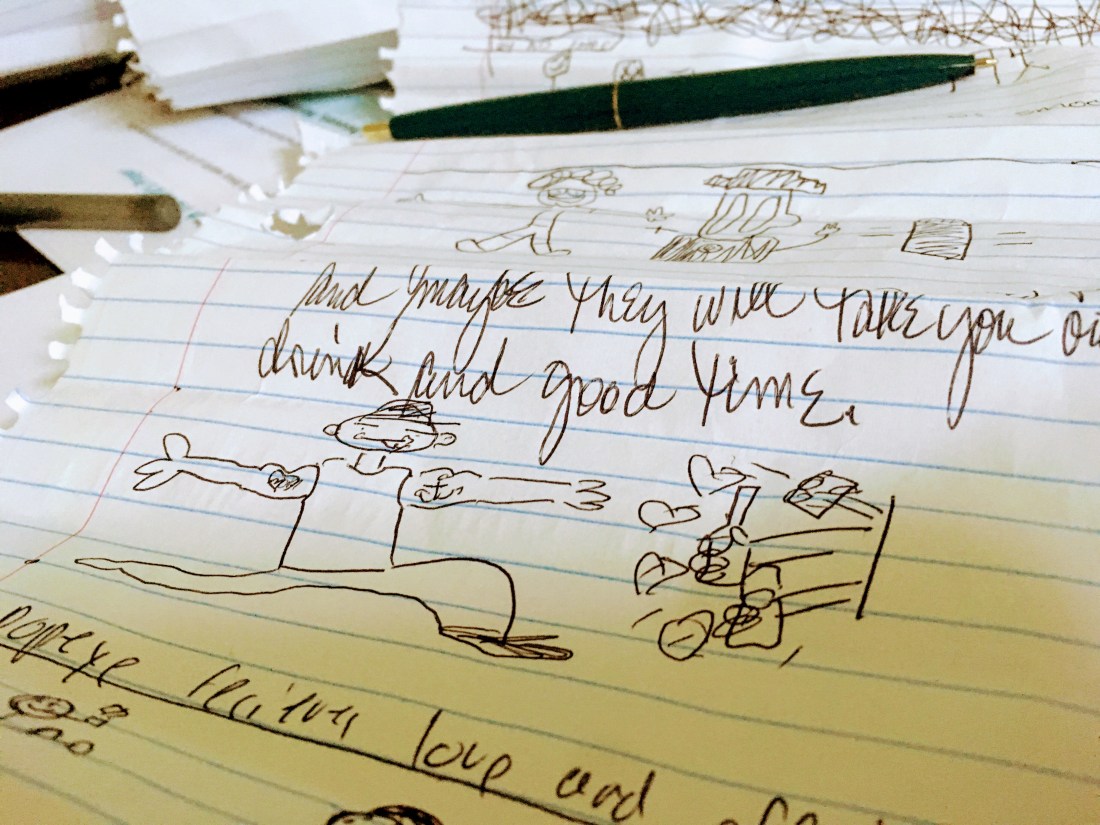 and maybe they will take you
drink and good time.
popeye
love and